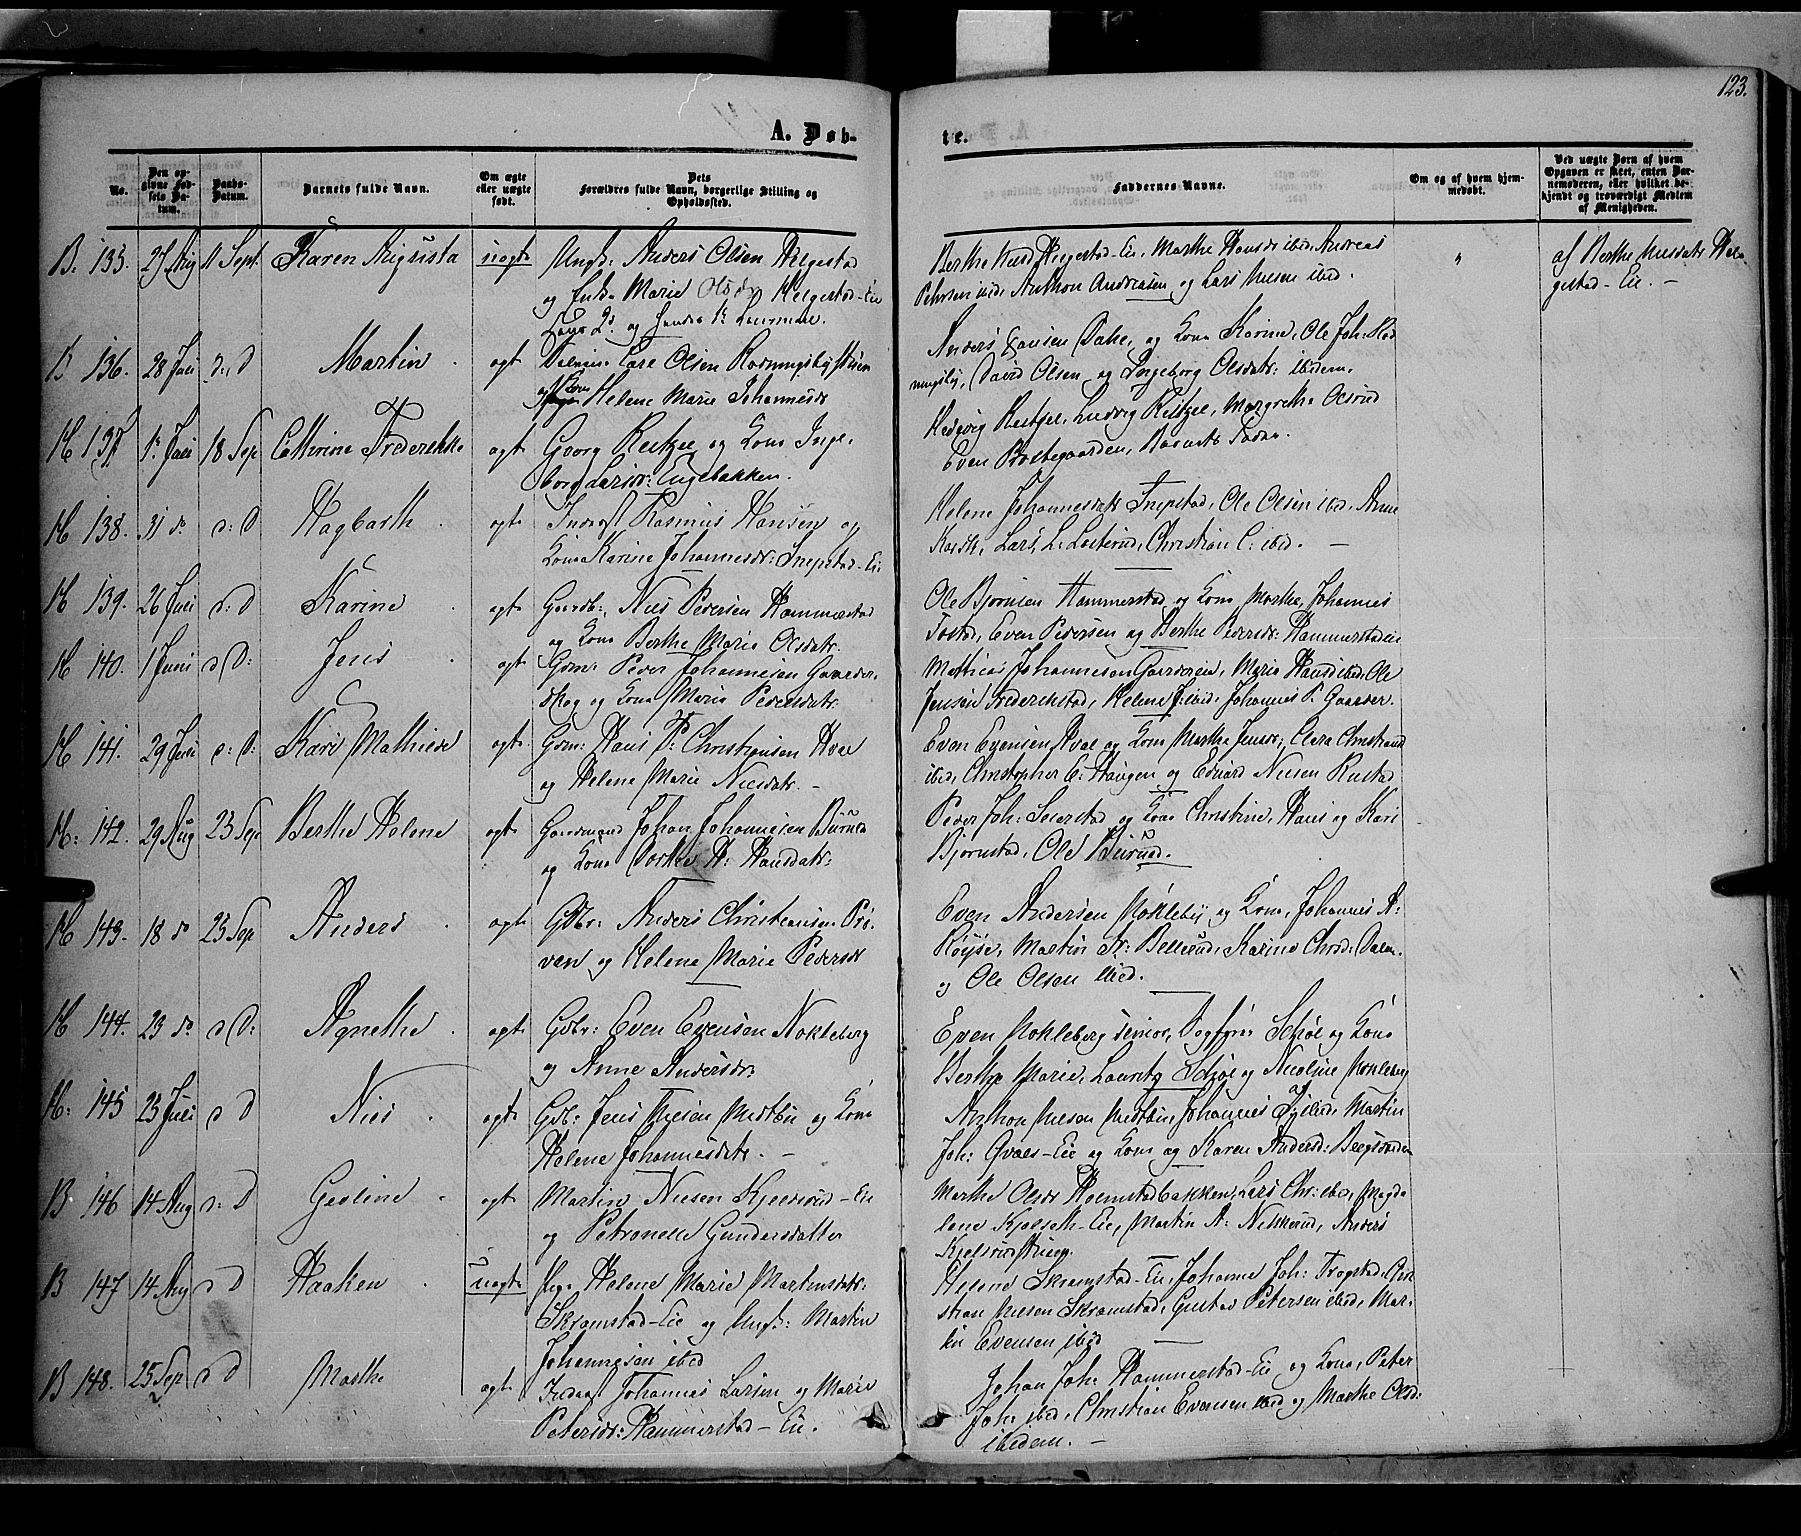 123.
A. Døb-
te.
No.
Den op-
givne Fød-
sels Da-
tum.
Daabs-
Datum.
Barnets fulde Navn.
Om ægte
eller uægte
født.
Dets
Forældres fulde Navn, borgerlige Stilling og
Opholdssted.
Faddernes Navne.
Om og af hvem hjem-
medøbt.
Ved uægte Børn af hvem
Opgaven er skeet, enten Bar-
nemoderen, eller hvilket be-
kjendt og troværdigt Medlem
af Menigheden.
B. 135. 27 Aug 11 Sept. Karen Augusta uægte Ungk: Anders Olsen Helgestad
og Marie Olsdr Helgestad-Eie
Berthe Helgestad-Eie, Marthe Hansdr ibid, Andreas
Petersen ibid, Anthon Andreasen og Lars Nielsen ibid.
"
af Berthe Nilsdatr Hel-
gestad-Eie. -
B 136. 28 Juli d: D Martin ægte Lars Olsen Rodningsby
Kone Helene Marie Johannesdr
Anders Hansen Dahl, og Kone Karine, Ole Joh: Rod
ningsby, David Olsen og Ingeborg Olsdatr: ibidem.
H 137 1. Juli 18 Sep Cathrine Frederikke ægte Georg Reitzel og Kone Inge-
borg Larsdr: Engebakken.
Hedevig Reitzel, Ludvig Reitzel, Margrethe Olsrud
Even Prestegaarden, Barnets Fader.
H 138. 31 do d: D Hagbarth ægte Inderst Rasmus Hansen og
Kone Karine Johannesdr: Snepstad-Eie
Helene Johannesdatr Snepstad, Ole Olsen ibid, Anne
Lars L: Loiterud, Christian C: ibid. -
H 139. 26 Juli d: D Karine ægte Gaardb: Niels Pedersen Hammerstad
og Kone Berthe Marie Olsdatr.
Ole Bjørnsen Hammerstad og Kone Marthe, Johannes
Tostad, Even Pedersen og Berthe Pedersdr: Hammerstadeie
H 140. 1 Juni d D: Jens ægte Grm: Peder Johannesen Gaarder-
skog og Kone Marie Pedersdatr.
Mathias Johannesen Gaarderen, Marie Hansd ibid, Ole
Jensen Frederikstad, Helene J: ibid, Johannes P. Gaarder.
H 141. 29 Juli d: D: Kari Mathilde ægte Grm: Hans P: Christiansen Hval
og Helene Marie Nielsdatr. -
Even Evensen Hval og Kone Marthe Jensdr, Clara Christiansd
ibid, Christopher E: Haugen og Edvard Nielsen Rustad
H: 142. 29 Aug 25 Sep Berthe Helene ægte Gaardmand Johan Johannesen Burud
og Kone Dorthe H: Hansdatr:
Peder Joh: Seierstad og Kone Christine, Hans og Kari
Bjørnstad, Ole Burud.
H 143. 18 do 25 Sep Anders ægte Gdbr: Anders Christiansen Prø-
ven og Helene Marie Pedersdr
Even Andersen Nøkleby og Kone, Johannes A:
Røise, Martin A: Bellerud, Karine Chrd: Dalen
og Ole Olsen ibid.
H 144. 23 do d D: Agnethe ægte Gdbr: Even Evensen Nøkleberg
og Anne Andersdr.
Even Nøkleberg senior, Dogfyrer Schøl og Kone
Berthe Marie, Lauretz Schøl og Nicoline Nøkleberg
H: 145 25 Juli d D Niels ægte Gdb: Jens Nilsen Midtbu og Kone
Helene Johannesdatr. -
Anthon Nilsen Midtbu, Johannes Martin
Joh: Qvales-Eie og Kone og Karen Andersd:
B 146 14 Aug d: D Geoline ægte Martin Nilsen Kjelsrud-Eie
og Petronelle Gundersdatter
Marthe Olsdr Holmstadbakken, Lars Chr: ibid, Magda
lene Kjølseth-Eie, Martin A: Nilskerud, Anders
Kjelsrudstuen.
B 147 14 Aug d D Haaken uægte Pge Helene Marie Martinsdatr:
Skramstad-Eie og Ungk: Martin
Johannesen ibid
Helene Skramstad-Eie, Johanne Joh: Frogstad, Chri-
stian Nilsen Skramstad, Gustav Petersen ibid, Mar-
tin Evensen ibid
B 148. 25 Sep d D Marthe ægte Inderst Johannes Larsen og Marie
Petersdr: Hammerstad-Eie.
Johan Joh: Hammerstad-Eie og Kone, Peter
Joh: ibid, Christian Evensen ibid og Marthe Olsd:
ibidem. -